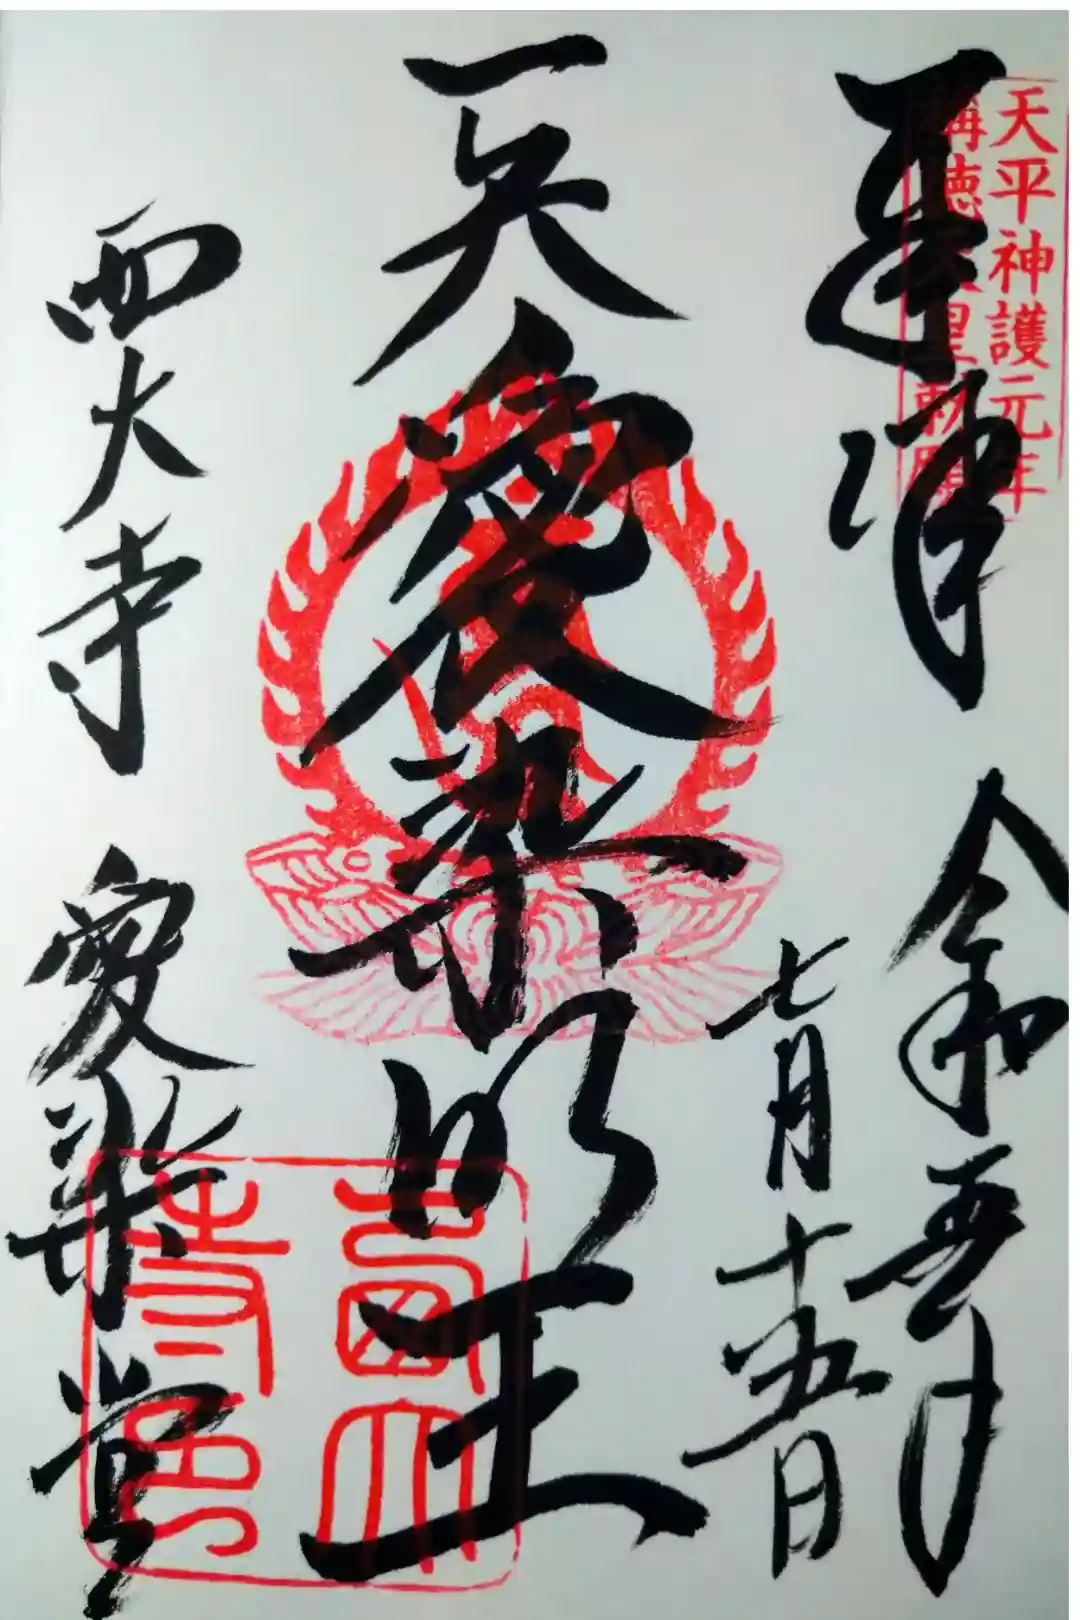 天平神護元年
稱徳天皇勅願
奉拝
令和五年
七月十五日
一矢愛染明王
西大寺 愛染堂
西大
寺印